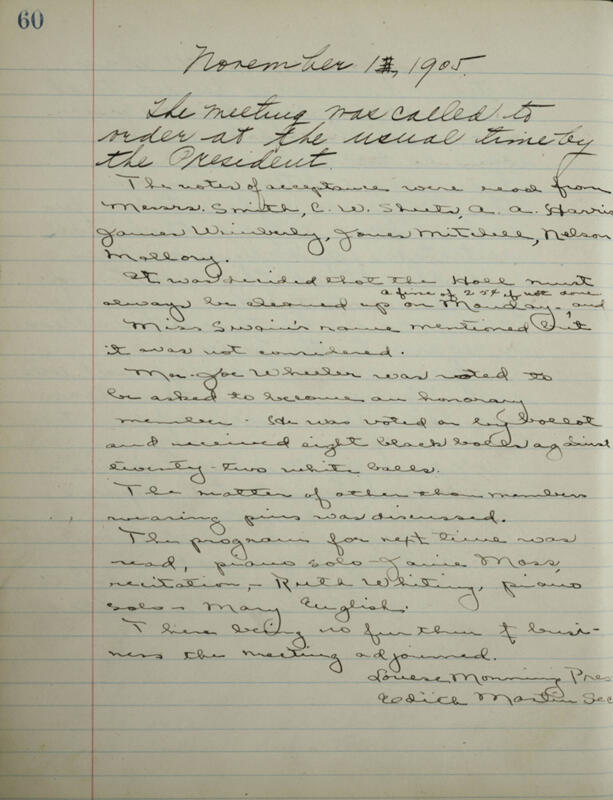 60
November 1, 1905.
The meeting was called to
order at the usual time by
the President.
The notes of acceptance were read from
Messrs. Smith, C. W. Sheets, A. A. Harris
James Wimberly, Jones Mitchell, Nelson
Mallory.
It was decided that the Hall must
a fine of 25¢ if not done
always be cleaned up on Monday, and
Miss Swain's name mentioned but
it was not considered.
Mr. Joe Wheeler was voted to
be asked to become an honorary
member. He was voted on by ballot
and received eight black balls against
twenty-two white balls.
The matter of other than members
wearing pins was discussed.
The program for next time was
read, piano solo - Janie Moss,
recitation, - Ruth Whiting, piano
solo - Mary English.
There being no further busi-
ness the meeting adjourned.
Louise Monning Pres
Edith Martin Sec